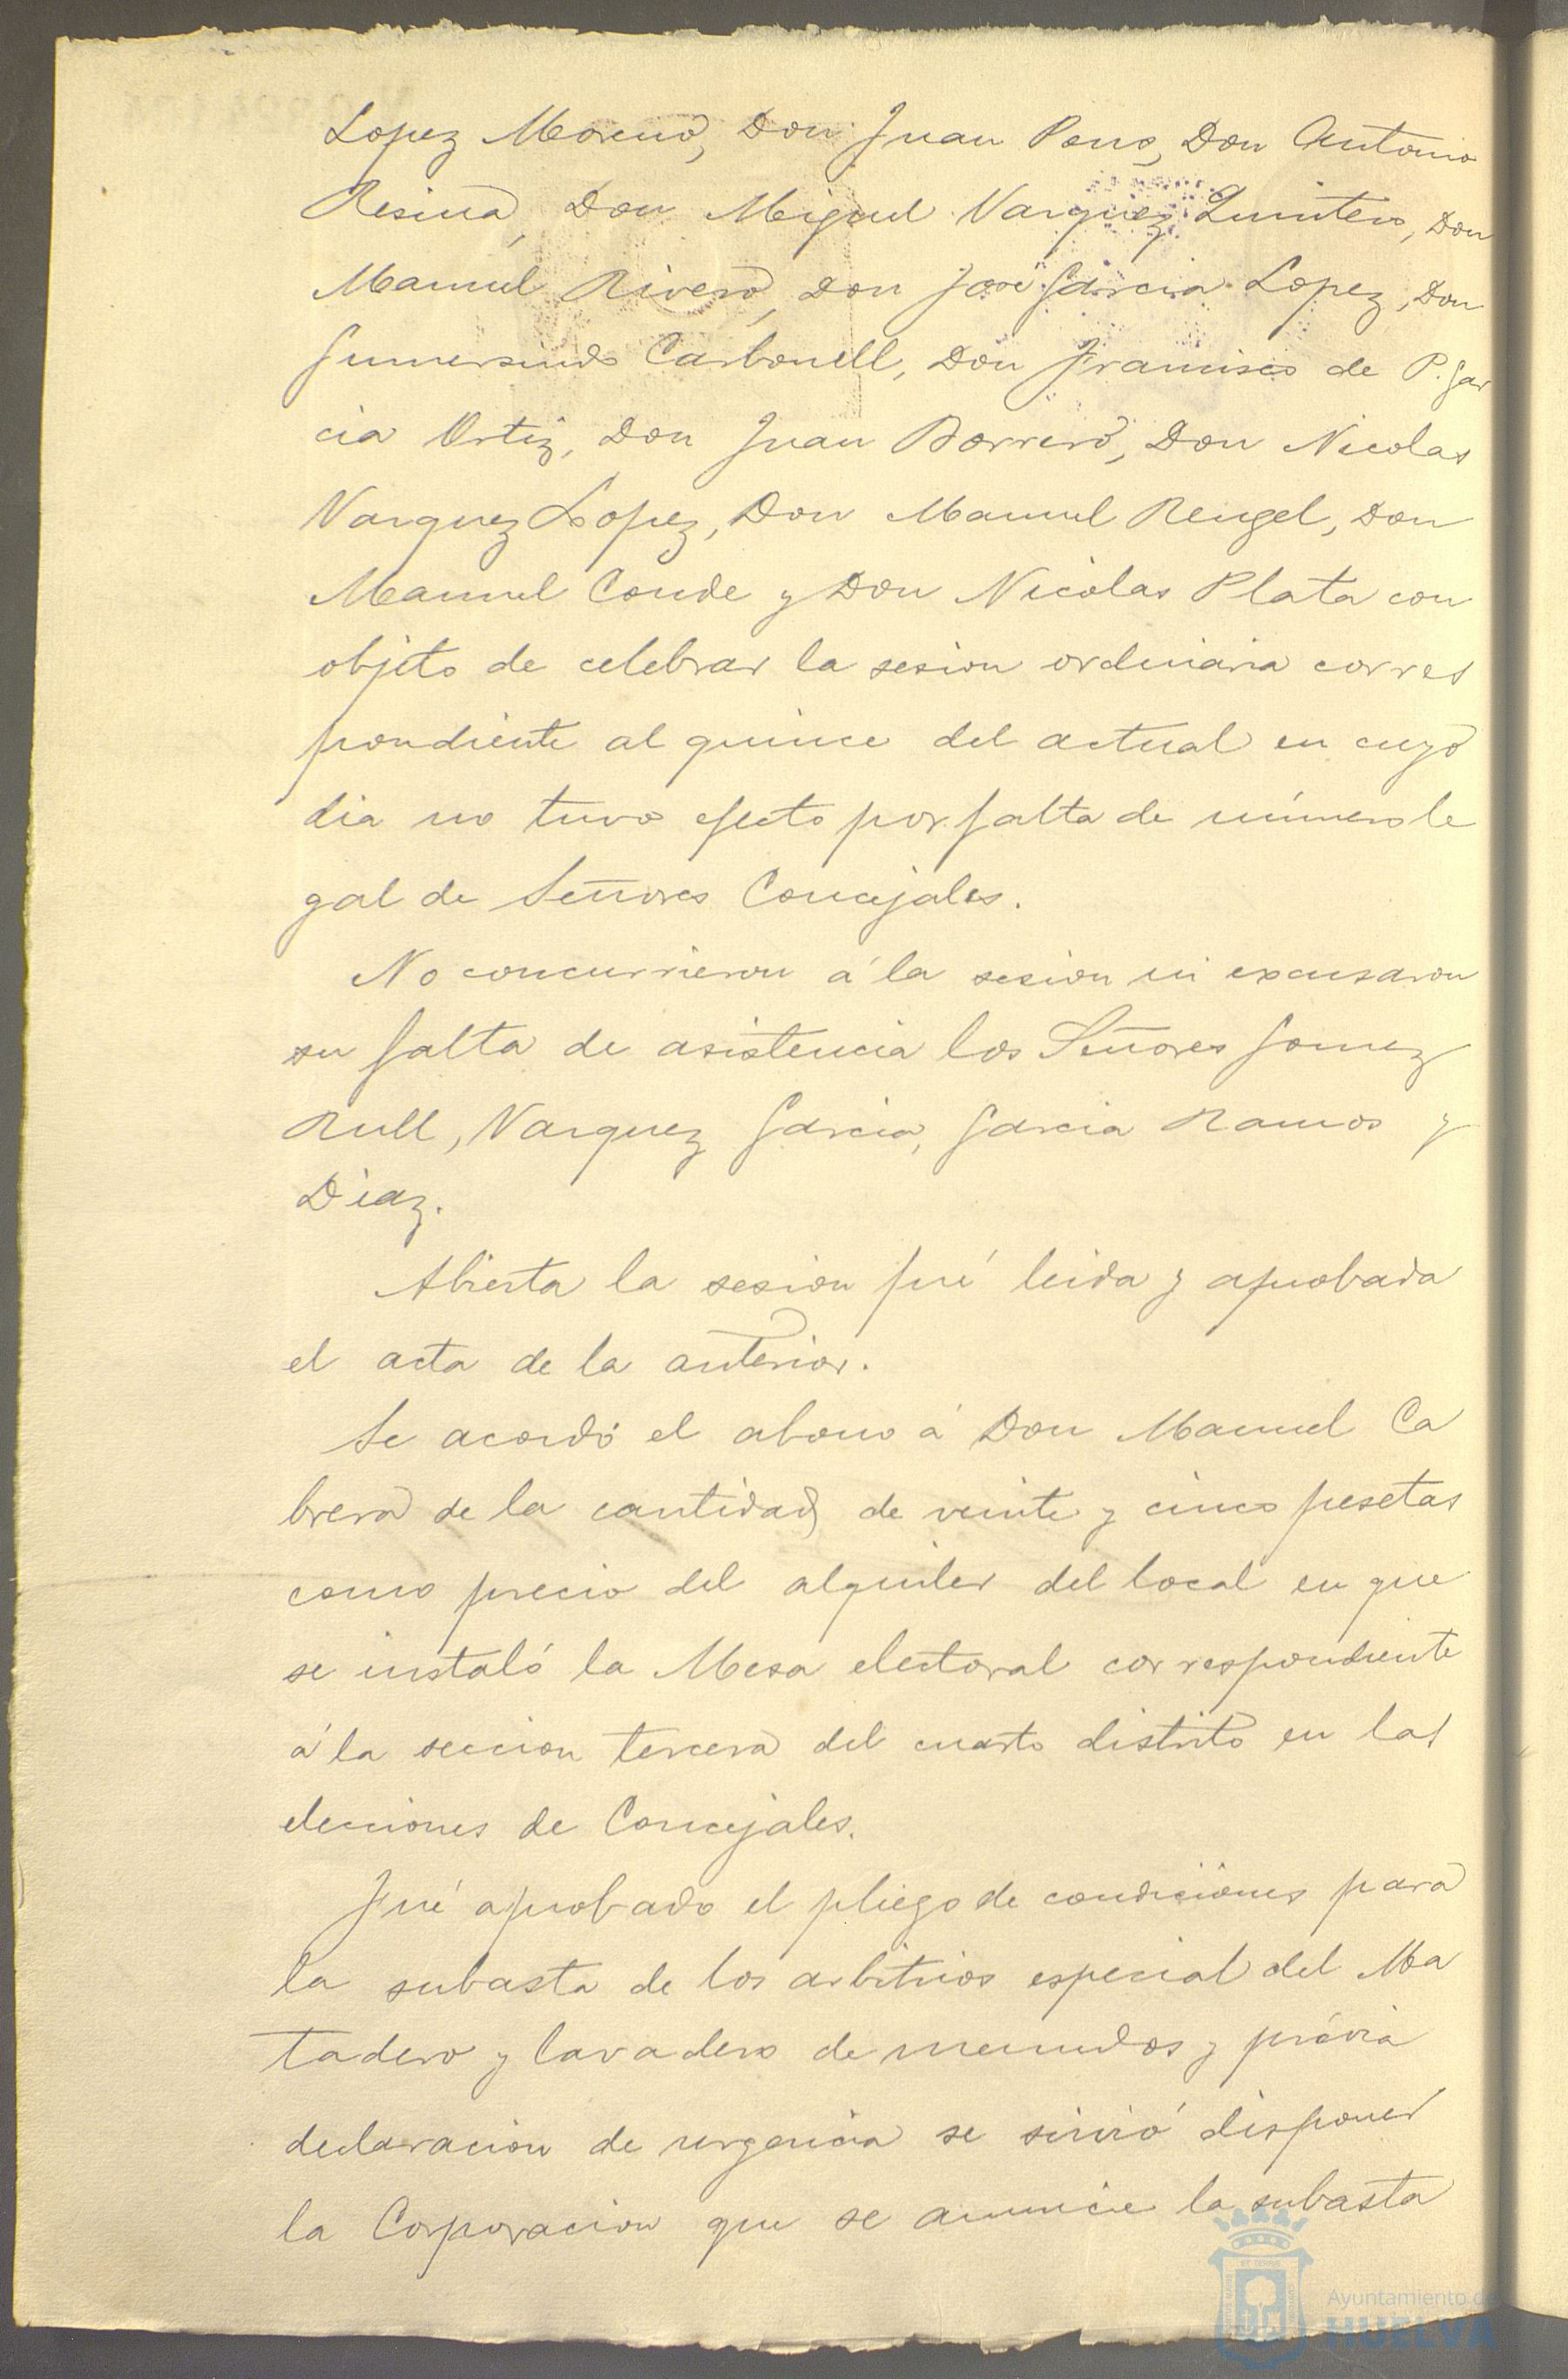 Lopez Moreno, Don Juan Pons, Don Antonio
Resina, Don Miguel Vazquez Quintero, Don
Manuel Rivero, Don José Garcia Lopez, Don
Gumersindo Carbonell, Don Francisco de P. Gar
cia Ortiz, Don Juan Borrero, Don Nicolas
Vazquez Lopez, Don Manuel Rengel, Don
Manuel Conde y Don Nicolas Plata con
objeto de celebrar la sesion ordinaria corres
pondiente al quince del actual en cuyo
dia no tuvo efecto por falta de número le
gal de Señores Concejales.
No concurrieron á la sesion ni excusaron
su falta de asistencia los Señores Gomez
Rull, Vazquez Garcia, Garcia Ramos y
Diaz.
Abierta la sesion fué leida y aprobada
el acta de la anterior.
Se acordó el abono á Don Manuel Ca
brera de la cantidad de veinte y cinco pesetas
como precio del alquiler del local en que
se instaló la Mesa electoral correspondiente
á la seccion tercera del cuarto distrito en las
elecciones de Concejales.
Fué aprobado el pliego de condiciones para
la subasta de los arbitrios especial del Ma
tadero y lavadero de menudos y prévia
declaracion de urgencia se sirvió disponer
la Corporacion que se anuncie la subasta
Ayuntamiento de
HUELVA